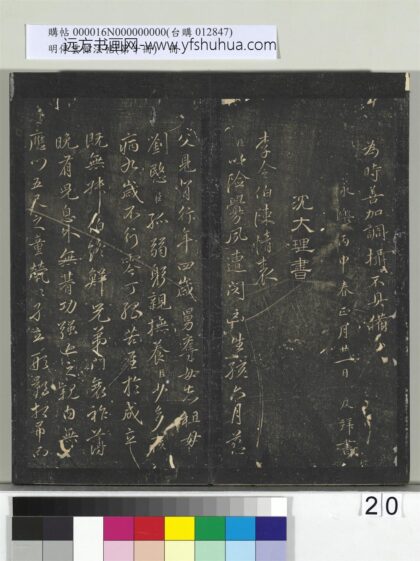 購帖 000016N000000000(台購 012847)
远方书画网-www.yfshuhua.com
為時善加調攝不具備
永樂丙申春正月廿一日 及拜書
沈大理書
李令伯陳情表
臣以險釁夙遭閔凶生孩六月慈
父見背行年四歲舅奪母志祖母
劉愍臣孤弱躬親撫養臣少多
病九歲不行零丁孤苦至於成立
既無叔伯終鮮兄弟門衰祚薄
晚有兒息外無朞功強近之親內無
應門五尺之童煢煢孑立形影相弔而
20